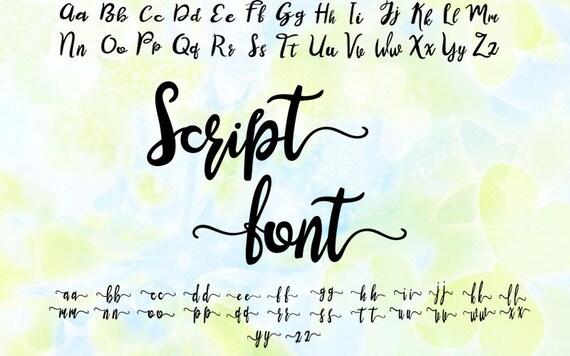 Aa Bb Cc Dd Ee Ff Gg Hh Ii Jj Kk Ll Mm
Nn Oo Pp Qq Rr Ss Tt Uu Vv Ww Xx Yy Zz
Script
font
aa bb cc dd ee ff gg hh ii jj kk ll
mm nn oo pp qq rr ss tt uu vv ww xx
yy zz